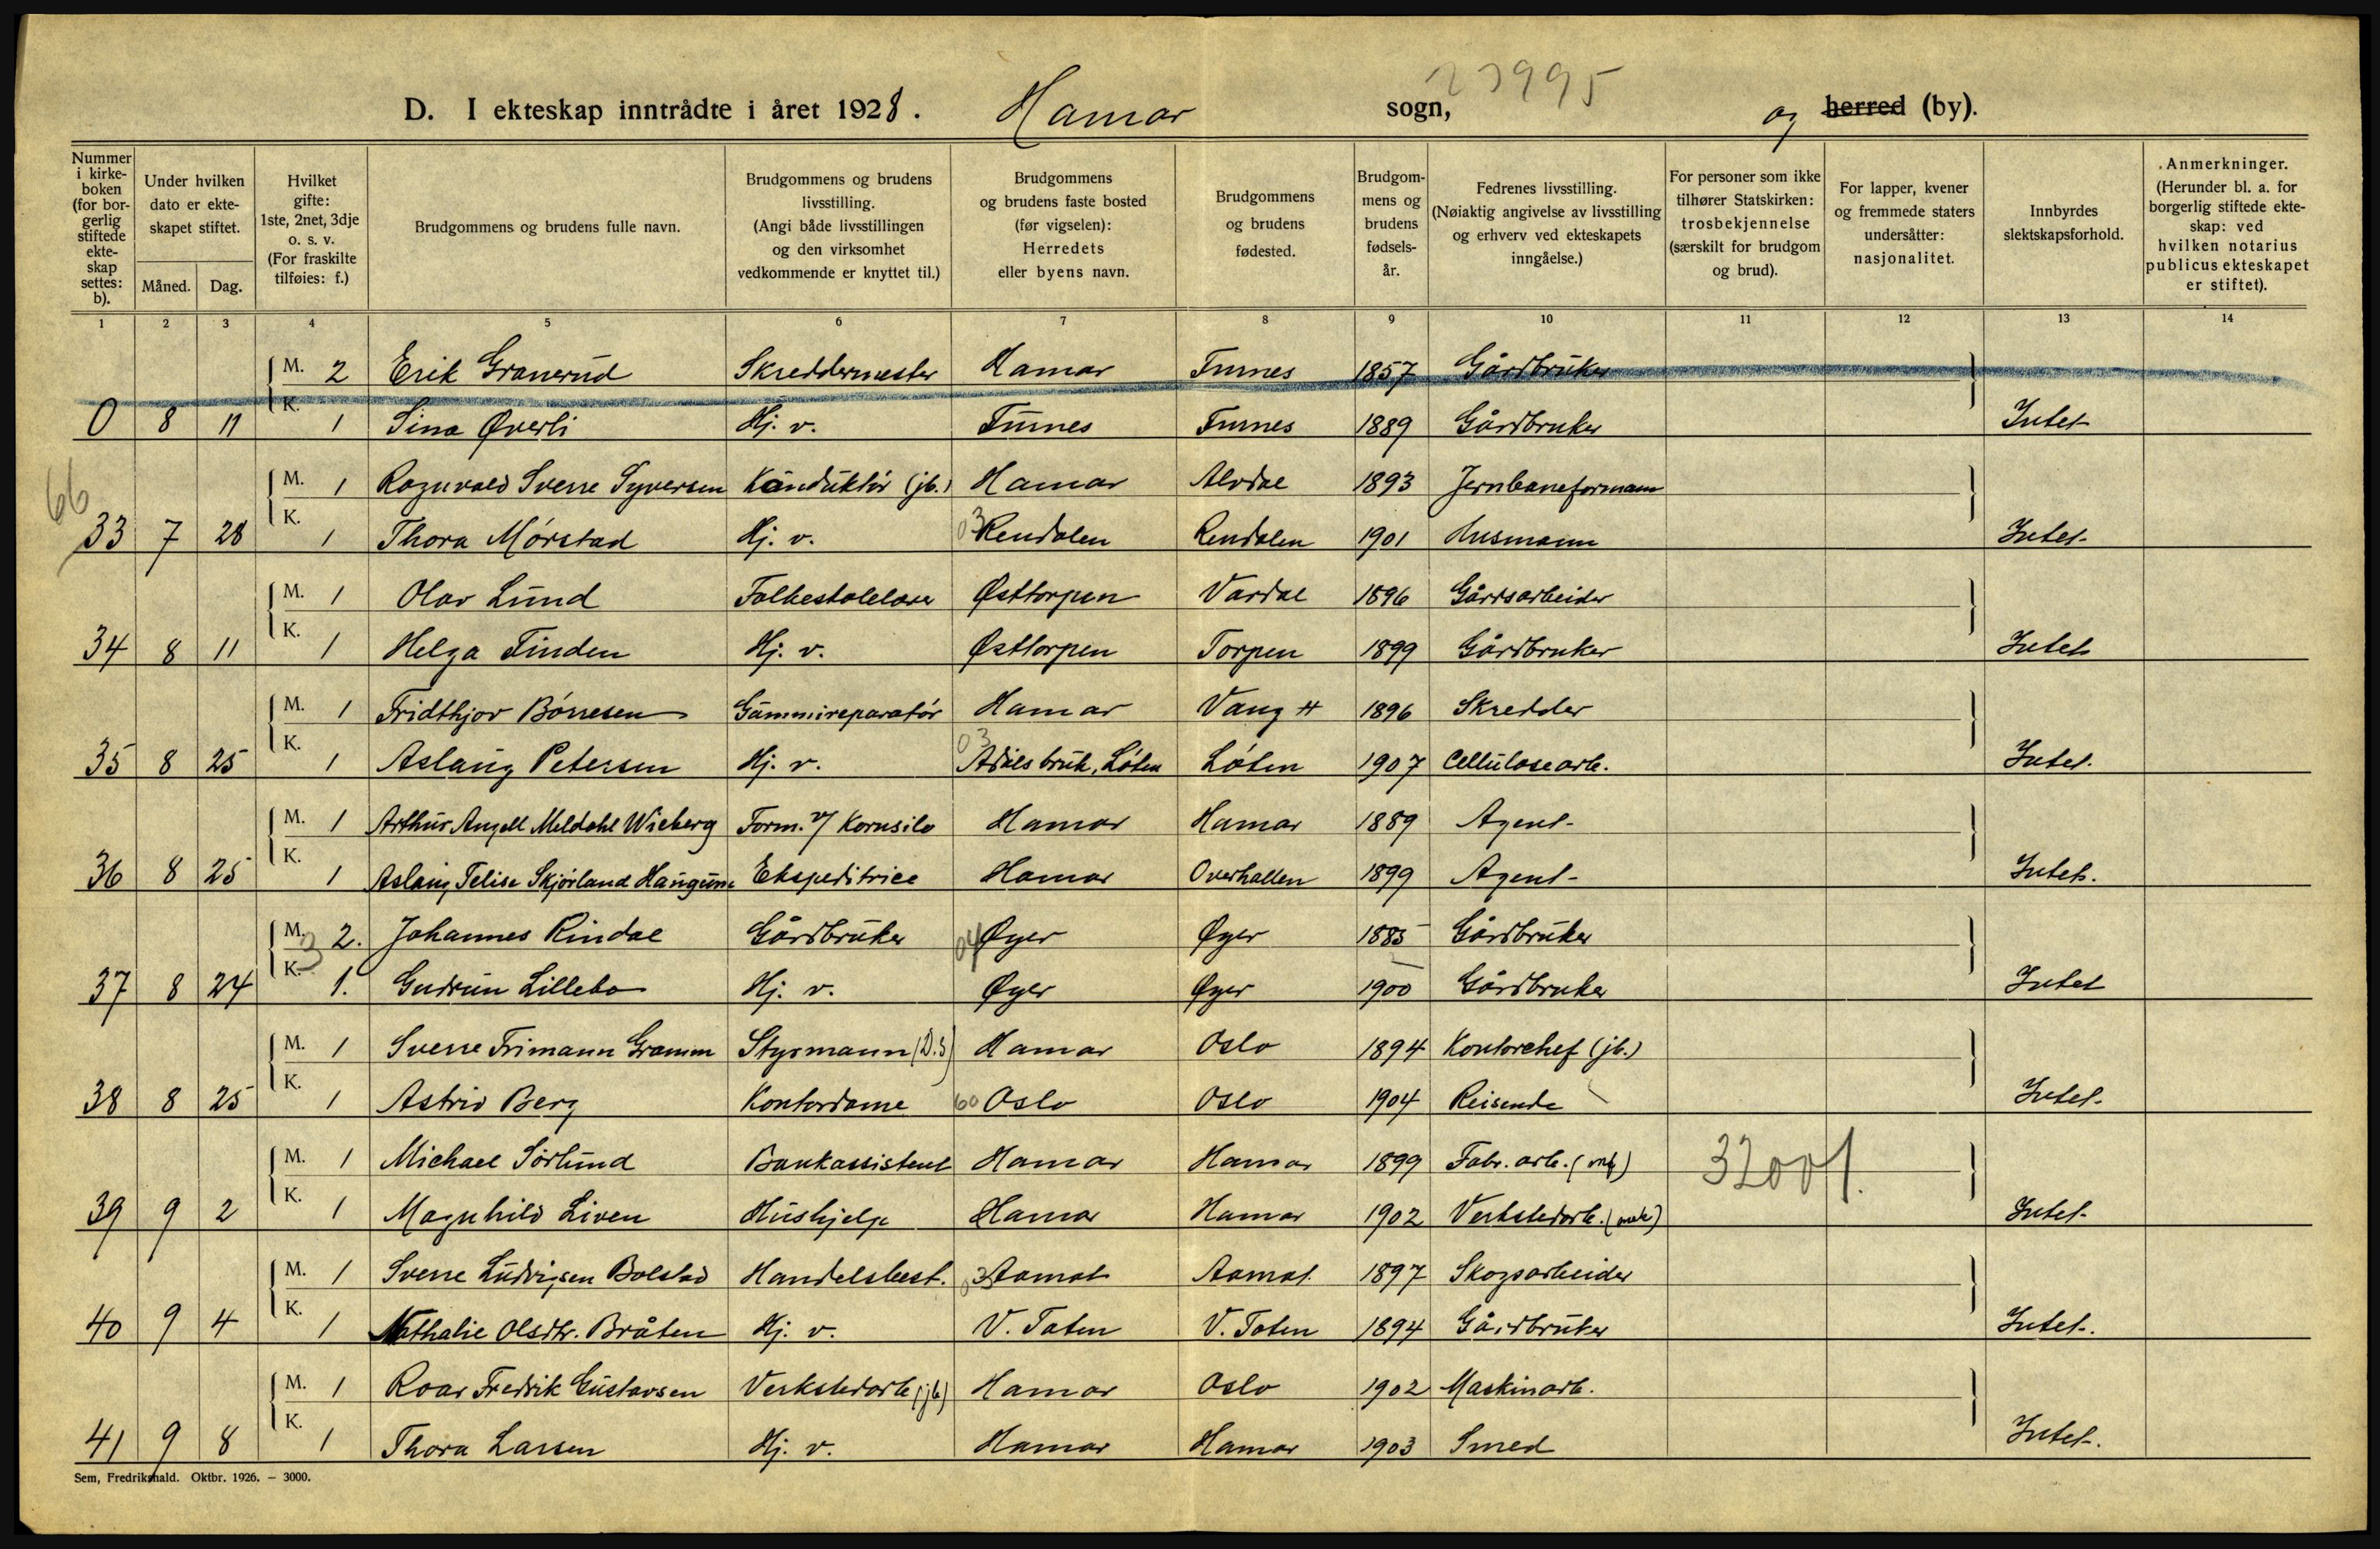 23995
D. I ekteskap inntrådte i året 1928. Hamar sogn, og herred (by).
Nummer i kirkeboken (for borgerlig stiftede ekteskap settes: b).
Under hvilken dato er ekteskapet stiftet.
Måned. Dag.
Hvilket gifte: 1ste, 2net, 3dje o. s. v. (For fraskilte tilføies: f.)
Brudgommens og brudens fulle navn.
Brudgommens og brudens livsstilling. (Angi både livsstillingen og den virksomhet vedkommende er knyttet til.)
Brudgommens og brudens faste bosted (før vigselen): Herredets eller byens navn.
Brudgommens og brudens fødested.
Brudgommens og brudens fødselsår.
Fedrenes livsstilling. (Nøiaktig angivelse av livsstilling og erhverv ved ekteskapets inngåelse.)
For personer som ikke tilhører Statskirken: trosbekjennelse (særskilt for brudgom og brud).
For lapper, kvener og fremmede staters undersåtter: nasjonalitet.
Innbyrdes slektskapsforhold.
Anmerkninger. (Herunder bl. a. for borgerlig stiftede ekteskap: ved hvilken notarius publicus ekteskapet er stiftet).
1 2 3 4 5 6 7 8 9 10 11 12 13 14
M. 2 Erik Granerud Skreddermester Hamar Furnes 1857 Gårdbruker
0 8 11 K. 1 Sina Øverli Hj. v. Furnes Furnes 1889 Gårdbruker Intet
66
M. 1 Ragnvald Sverre Syversen Konduktör (jb.) Hamar Alvdal 1893 Jernbaneformann
33 7 28 K. 1 Thora Mørstad Hj. v. 03 Rendalen Rendalen 1901 Husmann Intet
M. 1 Olav Lund Folkeskolelærer Østtorpen Vardal 1896 Gårdsarbeider
34 8 11 K. 1 Helga Finden Hj. v. Østtorpen Torpen 1899 Gårdbruker Intet
M. 1 Fridthjov Børresen Gummireparatør Hamar Vang H 1896 Skredder
35 8 25 K. 1 Aslaug Petersen Hj. v. 03 Ådalsbruk, Løten Løten 1907 Cellulosearb. Intet.
M. 1 Arthur Angell Meldahl Wieberg Form. v/ Kornsilo Hamar Hamar 1889 Agent
36 8 25 K. 1 Aslaug Telise Skjørland Haugum Ekspeditrice Hamar Overhallen 1899 Agent Intet.
M. 3 2. Johannes Rindal Gårdbruker 04 Øyer Øyer 1885 Gårdbruker
37 8 24 K. 1. Gudrun Lillebo Hj. v. Øyer Øyer 1900 Gårdbruker Intet
M. 1 Sverre Frimann Gramm Styrmann (D.S) Hamar Oslo 1894 Kontorchef (jb.)
38 8 25 K. 1 Astrid Berg Kontordame 60 Oslo Oslo 1904 Reisende Intet.
M. 1 Michael Sørlund Bankassistent Hamar Hamar 1899 Fabr. arb. (mk) 3200 1.
39 9 2 K. 1 Magnhild Liven Hushjelp Hamar Hamar 1902 Verkstedarb. (mek) Intet.
M. 1 Sverre Ludvigsen Bolstad Handelsbest. 03 Aamot Aamot 1897 Skogsarbeider
40 9 4 K. 1 Nathalie Olsdtr. Bråten Hj. v. V. Toten V. Toten 1894 Gårdbruker Intet.
M. 1 Roar Fredrik Gustavsen Verkstedarb (jb) Hamar Oslo 1902 Maskinarb.
41 9 8 K. 1 Thora Larsen Hj. v. Hamar Hamar 1903 Smed Intet.
Sem, Fredrikshald. Oktbr. 1926. – 3000.